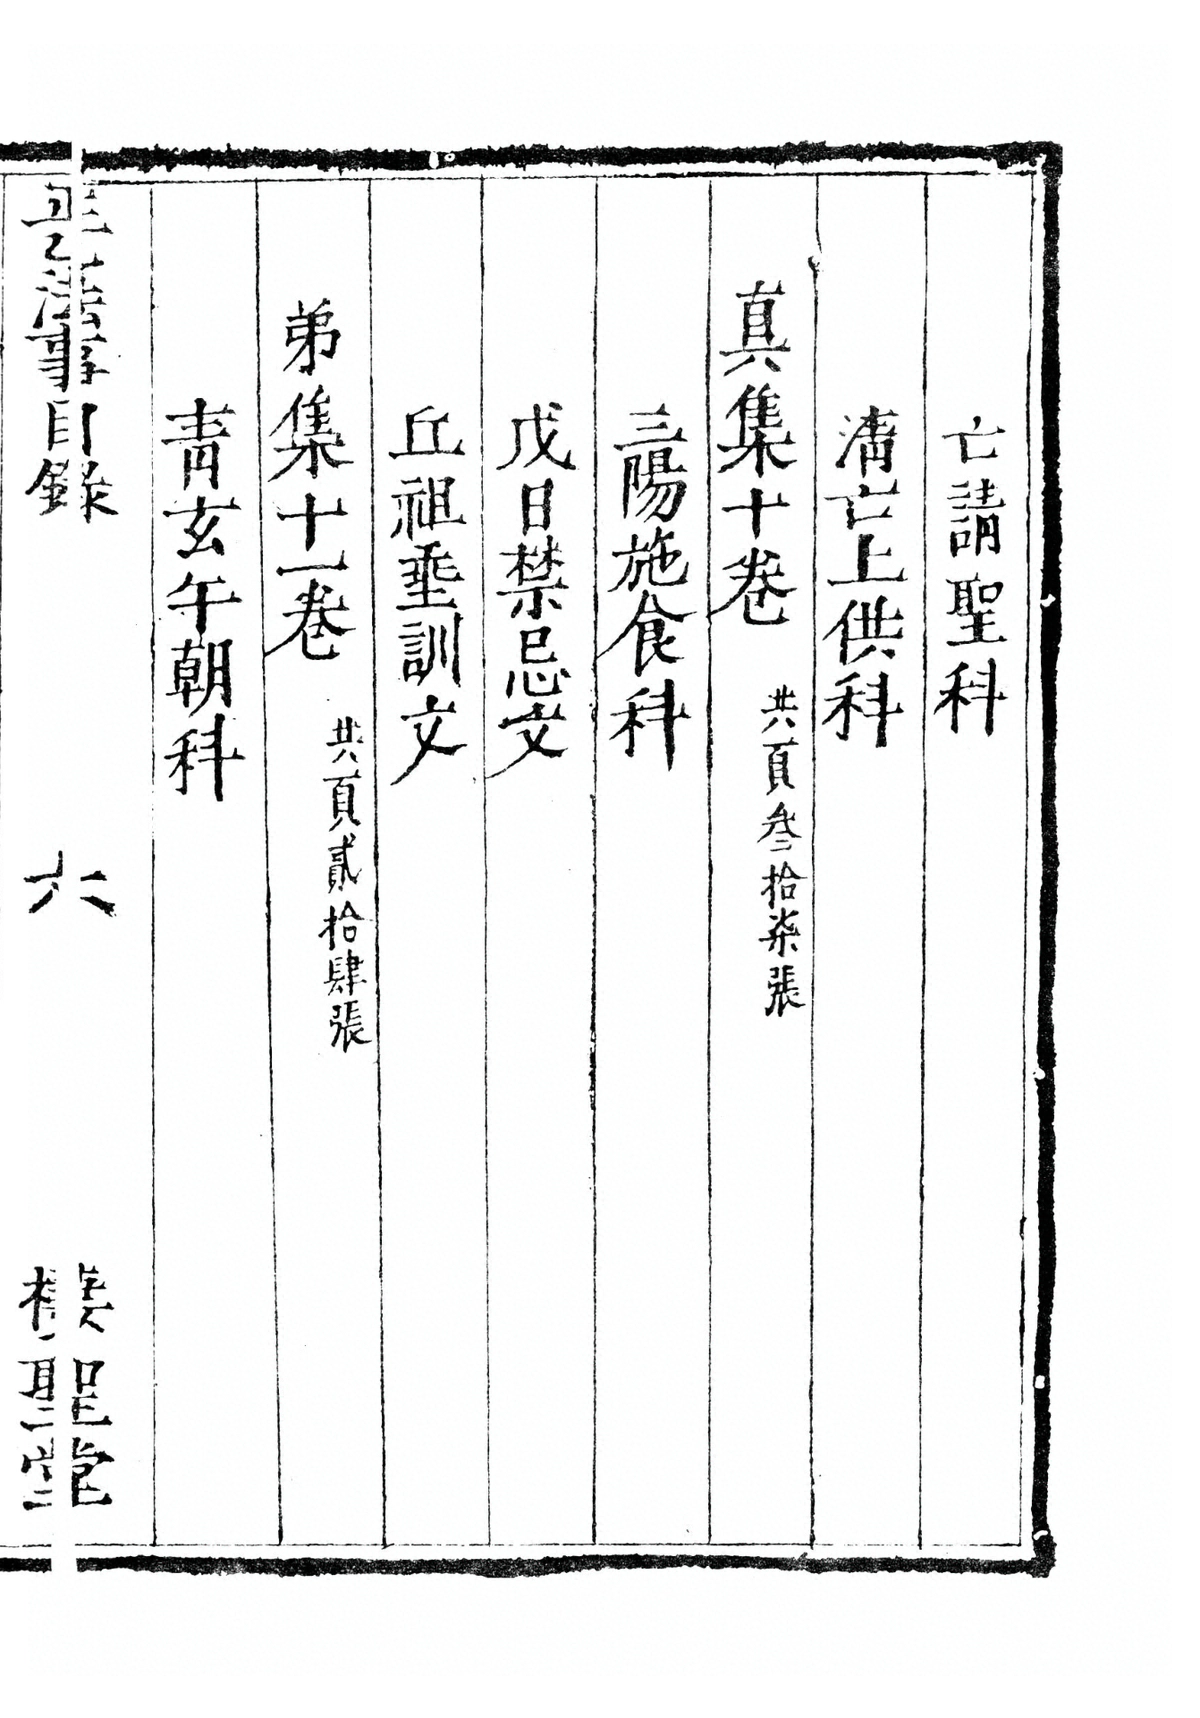 亡請聖科
清亡上供科
真集十卷 共頁叁拾柒張
三陽施食科
戊日禁忌文
丘祖垂訓文
弟集十一卷 共頁貳拾肆張
青玄午朝科
法事目錄 六 聖堂